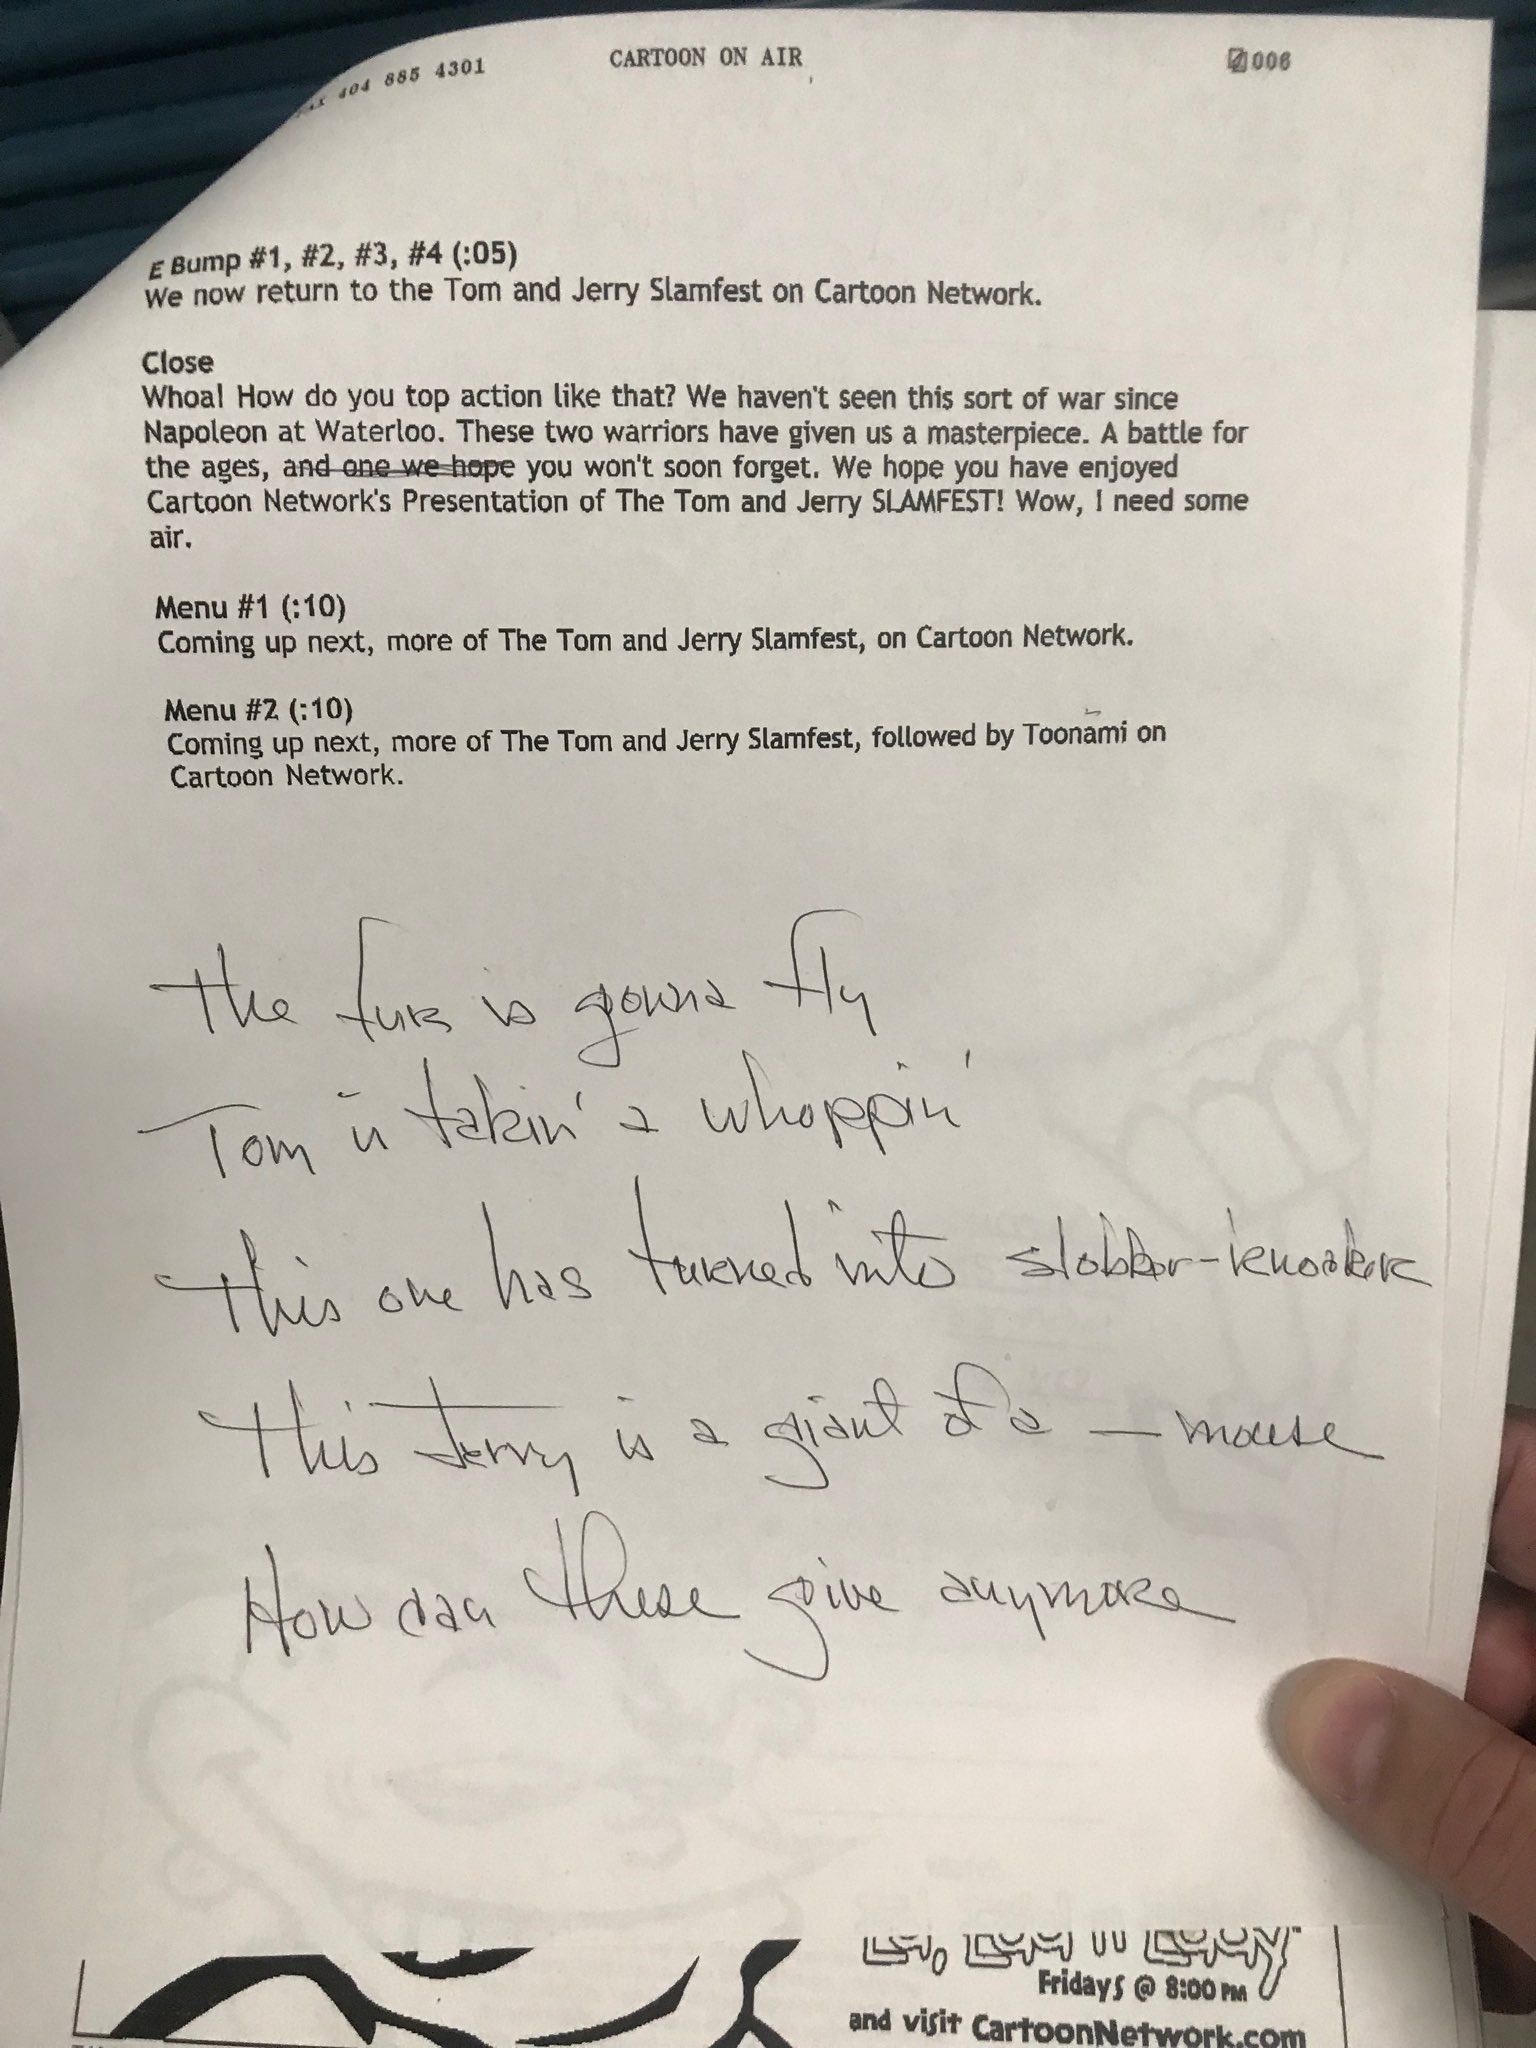 FAX 404 885 4301 CARTOON ON AIR 006
E Bump #1, #2, #3, #4 (:05)
We now return to the Tom and Jerry Slamfest on Cartoon Network.
Close
Whoa! How do you top action like that? We haven't seen this sort of war since
Napoleon at Waterloo. These two warriors have given us a masterpiece. A battle for
the ages, and one we hope you won't soon forget. We hope you have enjoyed
Cartoon Network's Presentation of The Tom and Jerry SLAMFEST! Wow, I need some
air.
Menu #1 (:10)
Coming up next, more of The Tom and Jerry Slamfest, on Cartoon Network.
Menu #2 (:10)
Coming up next, more of The Tom and Jerry Slamfest, followed by Toonami on
Cartoon Network.
The fur is gonna fly
Tom is takin' a whoppin'
This one has turned into slobber-knocker
This Jerry is a giant of a — mouse
How can these give anymore
Ed, Edd n Eddy™
Fridays @ 8:00 PM
and visit CartoonNetwork.com